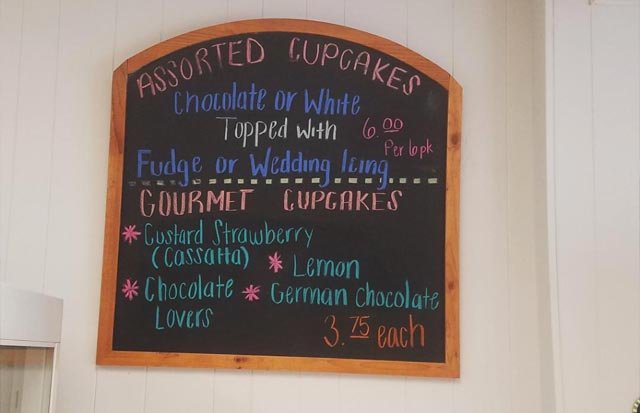 ASSORTED CUPCAKES
Chocolate or White
Topped with 6.00
Per 6pk
Fudge or Wedding Icing
GOURMET CUPCAKES
* Custard Strawberry
(Cassatta)
* Lemon
* Chocolate
Lovers
* German Chocolate
3.75 each